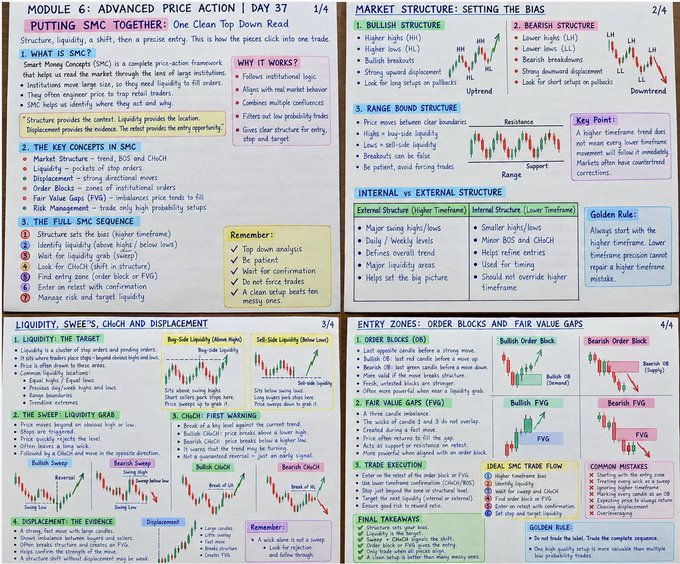 MODULE 6: ADVANCED PRICE ACTION | DAY 37
1/4
PUTTING SMC TOGETHER: One Clean Top Down Read
Structure, liquidity, a shift, then a precise entry. This is how the pieces click into one trade.
1. WHAT IS SMC?
Smart Money Concepts (SMC) is a complete price-action framework
that helps us read the market through the lens of large institutions.
• Institutions move large size, so they need liquidity to fill orders.
• They often engineer price to trap retail traders.
• SMC helps us identify where they act and why.
"Structure provides the context. Liquidity provides the location.
Displacement provides the evidence. The retest provides the entry opportunity."
WHY IT WORKS?
• Follows institutional logic
• Aligns with real market behavior
• Combines multiple confluences
• Filters out low probability trades
• Gives clear structure for entry,
stop and target
2. THE KEY CONCEPTS IN SMC
• Market Structure - trend, BOS and CHoCH
• Liquidity - pockets of stop orders
• Displacement - strong directional moves
• Order Blocks - zones of institutional orders
• Fair Value Gaps (FVG) - imbalances price tends to fill
• Risk Management - trade only high probability setups
3. THE FULL SMC SEQUENCE
1 Structure sets the bias (higher timeframe)
2 Identify liquidity (above highs / below lows)
3 Wait for liquidity grab (sweep)
4 Look for CHoCH (shift in structure)
5 Find entry zone (order block or FVG)
6 Enter on retest with confirmation
7 Manage risk and target liquidity
Remember:
✓ Top down analysis
✓ Be patient
✓ Wait for confirmation
✓ Do not force trades
✓ A clean setup beats ten
messy ones.
MARKET STRUCTURE: SETTING THE BIAS
2/4
1. BULLISH STRUCTURE
• Higher highs (HH)
• Higher lows (HL)
• Bullish breakouts
• Strong upward displacement
• Look for long setups on pullbacks
HH
HH
HH
HL
HL
Uptrend
2. BEARISH STRUCTURE
• Lower highs (LH)
• Lower lows (LL)
• Bearish breakdowns
• Strong downward displacement
• Look for short setups on pullbacks
LH
LH
LL
LL
Downtrend
3. RANGE BOUND STRUCTURE
• Price moves between clear boundaries
• Highs = buy-side liquidity
• Lows = sell-side liquidity
• Breakouts can be false
• Be patient, avoid forcing trades
Resistance
Support
Range
Key Point:
A higher timeframe trend does
not mean every lower timeframe
move will follow it immediately.
Markets often have countertrend
corrections.
INTERNAL vs EXTERNAL STRUCTURE
External Structure (Higher Timeframe)
• Major swing highs/lows
• Daily / Weekly levels
• Defines overall trend
• Major liquidity areas
• Helps set the big picture
Internal Structure (Lower Timeframe)
• Smaller highs/lows
• Minor BOS and CHoCH
• Helps refine entries
• Used for timing
• Should not override higher
timeframe
Golden Rule:
Always start with the
higher timeframe. Lower
timeframe precision cannot
repair a higher timeframe
mistake.
LIQUIDITY, SWEE"S, CHoCH AND DISPLACEMENT
3/4
1. LIQUIDITY: THE TARGET
• Liquidity is a cluster of stop orders and pending orders.
• It sits where traders place stops - beyond obvious highs and lows.
• Price is often drawn to these areas.
Common liquidity locations:
• Equal highs / Equal lows
• Previous day/week highs and lows
• Range boundaries
• Trendline extremes
Buy-Side Liquidity (Above Highs)
Buy-side Liquidity
Sits above swing highs.
Short sellers park stops here.
Price sweeps up to grab it.
Sell-Side Liquidity (Below Lows)
Sell-side Liquidity
Sits below swing lows.
Long buyers park stops here.
Price sweeps down to grab it.
2. THE SWEEP: LIQUIDITY GRAB
• Price moves beyond an obvious high or low.
• Stops are triggered.
• Price quickly rejects the level.
• Often leaves a long wick.
• Followed by CHoCH and move in the opposite direction.
Bullish Sweep
Reversal
Swing Low
Bearish Sweep
Swing High
Sweep below low
Swing Low
3. CHoCH: FIRST WARNING
• Break of a key level against the current trend.
• Bullish CHoCH: price breaks above a lower high.
• Bearish CHoCH: price breaks below a higher low.
• It warns that the trend may be turning.
• Not a guaranteed reversal - just an early signal.
Bullish CHoCH
Break of LH
Bearish CHoCH
Break of HL
4. DISPLACEMENT: THE EVIDENCE
• A strong, fast move with large candles.
• Shows imbalance between buyers and sellers.
• Often breaks structure and creates an FVG.
• Helps confirm the strength of the move.
• A structure shift without displacement may be weak.
Displacement
• Large candles
• Little overlap
• Fast move
• Breaks structure
• Creates FVG
Remember:
• A wick alone is not a sweep.
• Look for rejection
and follow through.
ENTRY ZONES: ORDER BLOCKS AND FAIR VALUE GAPS
4/4
1. ORDER BLOCKS (OB)
• Last opposite candle before a strong move.
• Bullish OB: last red candle before move up.
• Bearish OB: last green candle before move down.
• More valid if the move breaks structure.
• Fresh, untested blocks are stronger.
• Often more powerful when near a liquidity grab.
Bullish Order Block
Bullish OB
(Demand)
Bearish Order Block
Bearish OB
(Supply)
2. FAIR VALUE GAPS (FVG)
• A three candle imbalance.
• The wicks of candle 1 and 3 do not overlap.
• Created during a fast move.
• Price often returns to fill the gap.
• Acts as support or resistance on retest.
• More powerful when aligned with an order block.
Bullish FVG
FVG
Bearish FVG
FVG
3. TRADE EXECUTION
• Enter on the retest of the order block or FVG.
• Use lower timeframe confirmation (CHoCH/BOS).
• Stop just beyond the zone or structural level.
• Target the next liquidity (internal or external).
• Ensure good risk to reward ratio.
IDEAL SMC TRADE FLOW
1 Higher timeframe bias
2 Identify liquidity
3 Wait for sweep and CHoCH
4 Find order block or FVG
5 Enter on retest with confirmation
6 Set stop and target liquidity
COMMON MISTAKES
✗ Starting with the entry zone
✗ Treating every wick as a sweep
✗ Ignoring higher timeframe
✗ Marking every candle as an OB
✗ Expecting price to always return
✗ Chasing displacement
✗ Overleveraging
FINAL TAKEAWAYS
✓ Structure sets your bias.
✓ Liquidity is the target.
✓ Sweep + CHoCH signals the shift.
✓ Order block or FVG gives the entry.
✓ Only trade when all pieces align.
✓ A clean setup is better than many messy ones.
GOLDEN RULE:
• Do not trade the label. Trade the complete sequence.
• One high quality setup is more valuable than multiple
low probability trades.